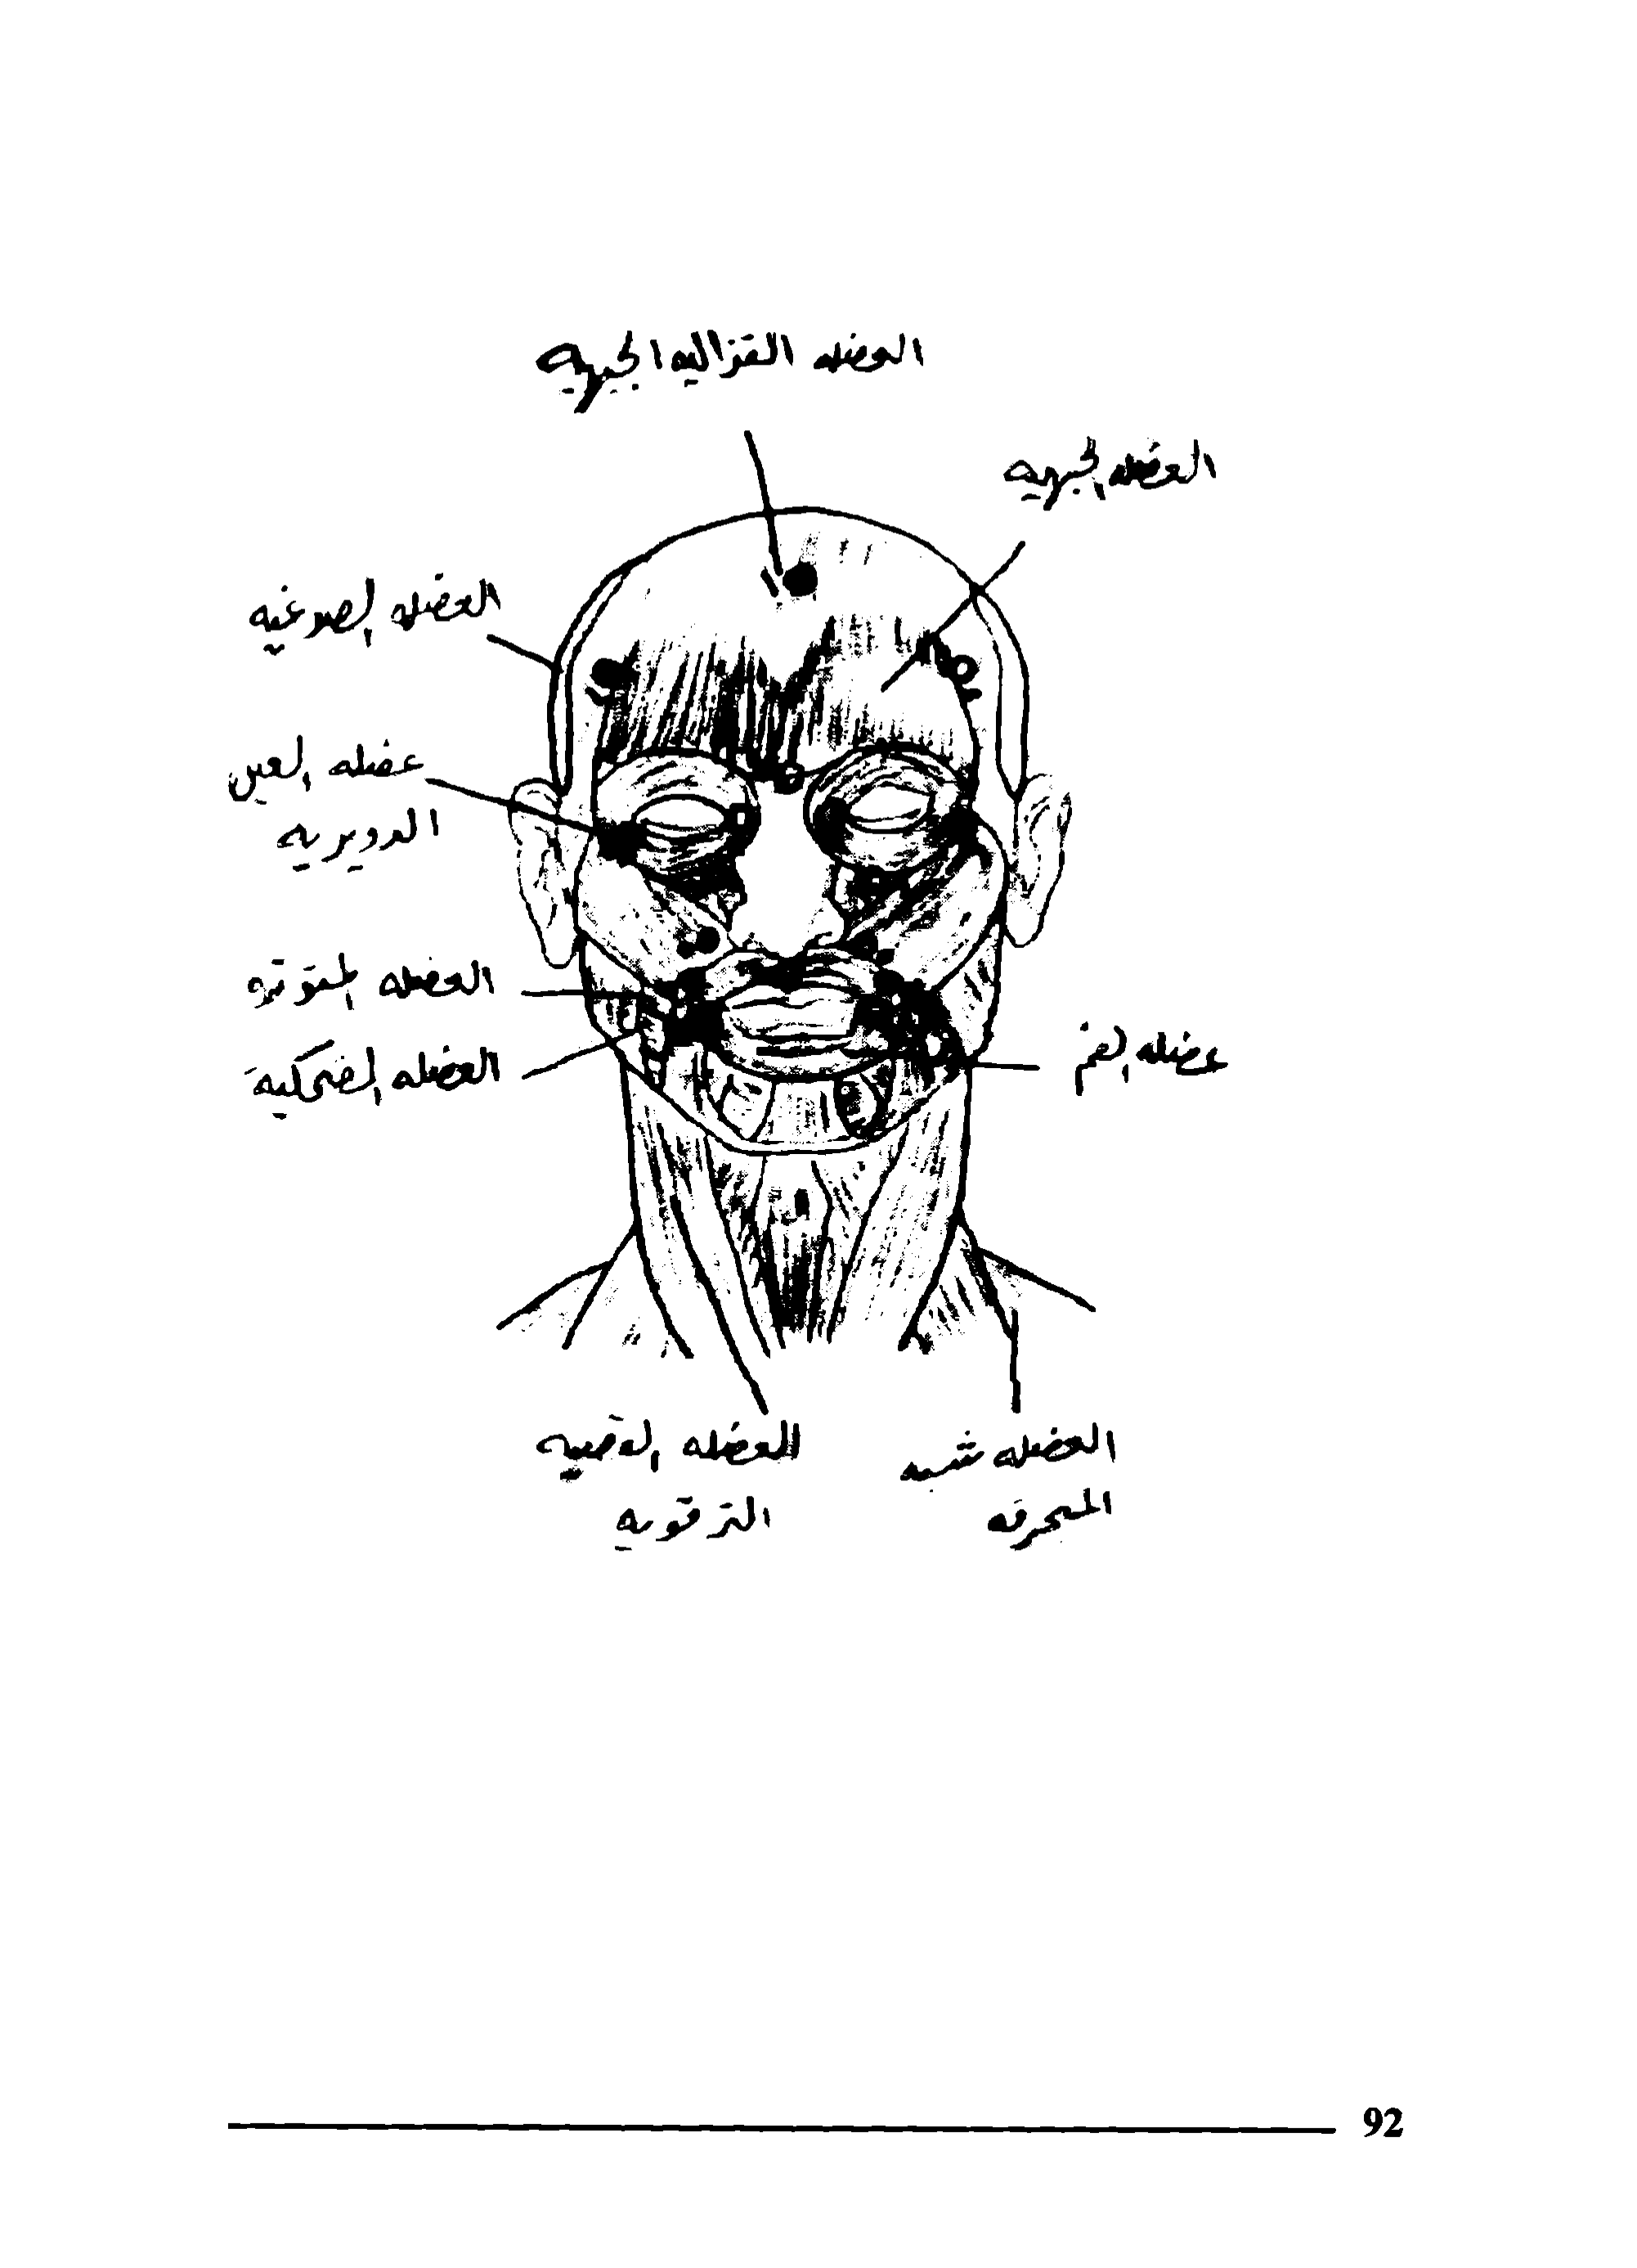 العضله القزاليه الجبهيه
العضله الجبهيه
العضله الصدغيه
عضله العين
الدويريه
العضله المتوتره
العضله الضحكيه
عضله الفم
العضله القصيه
الترقويه
العضله شبه
المنحرفه
92